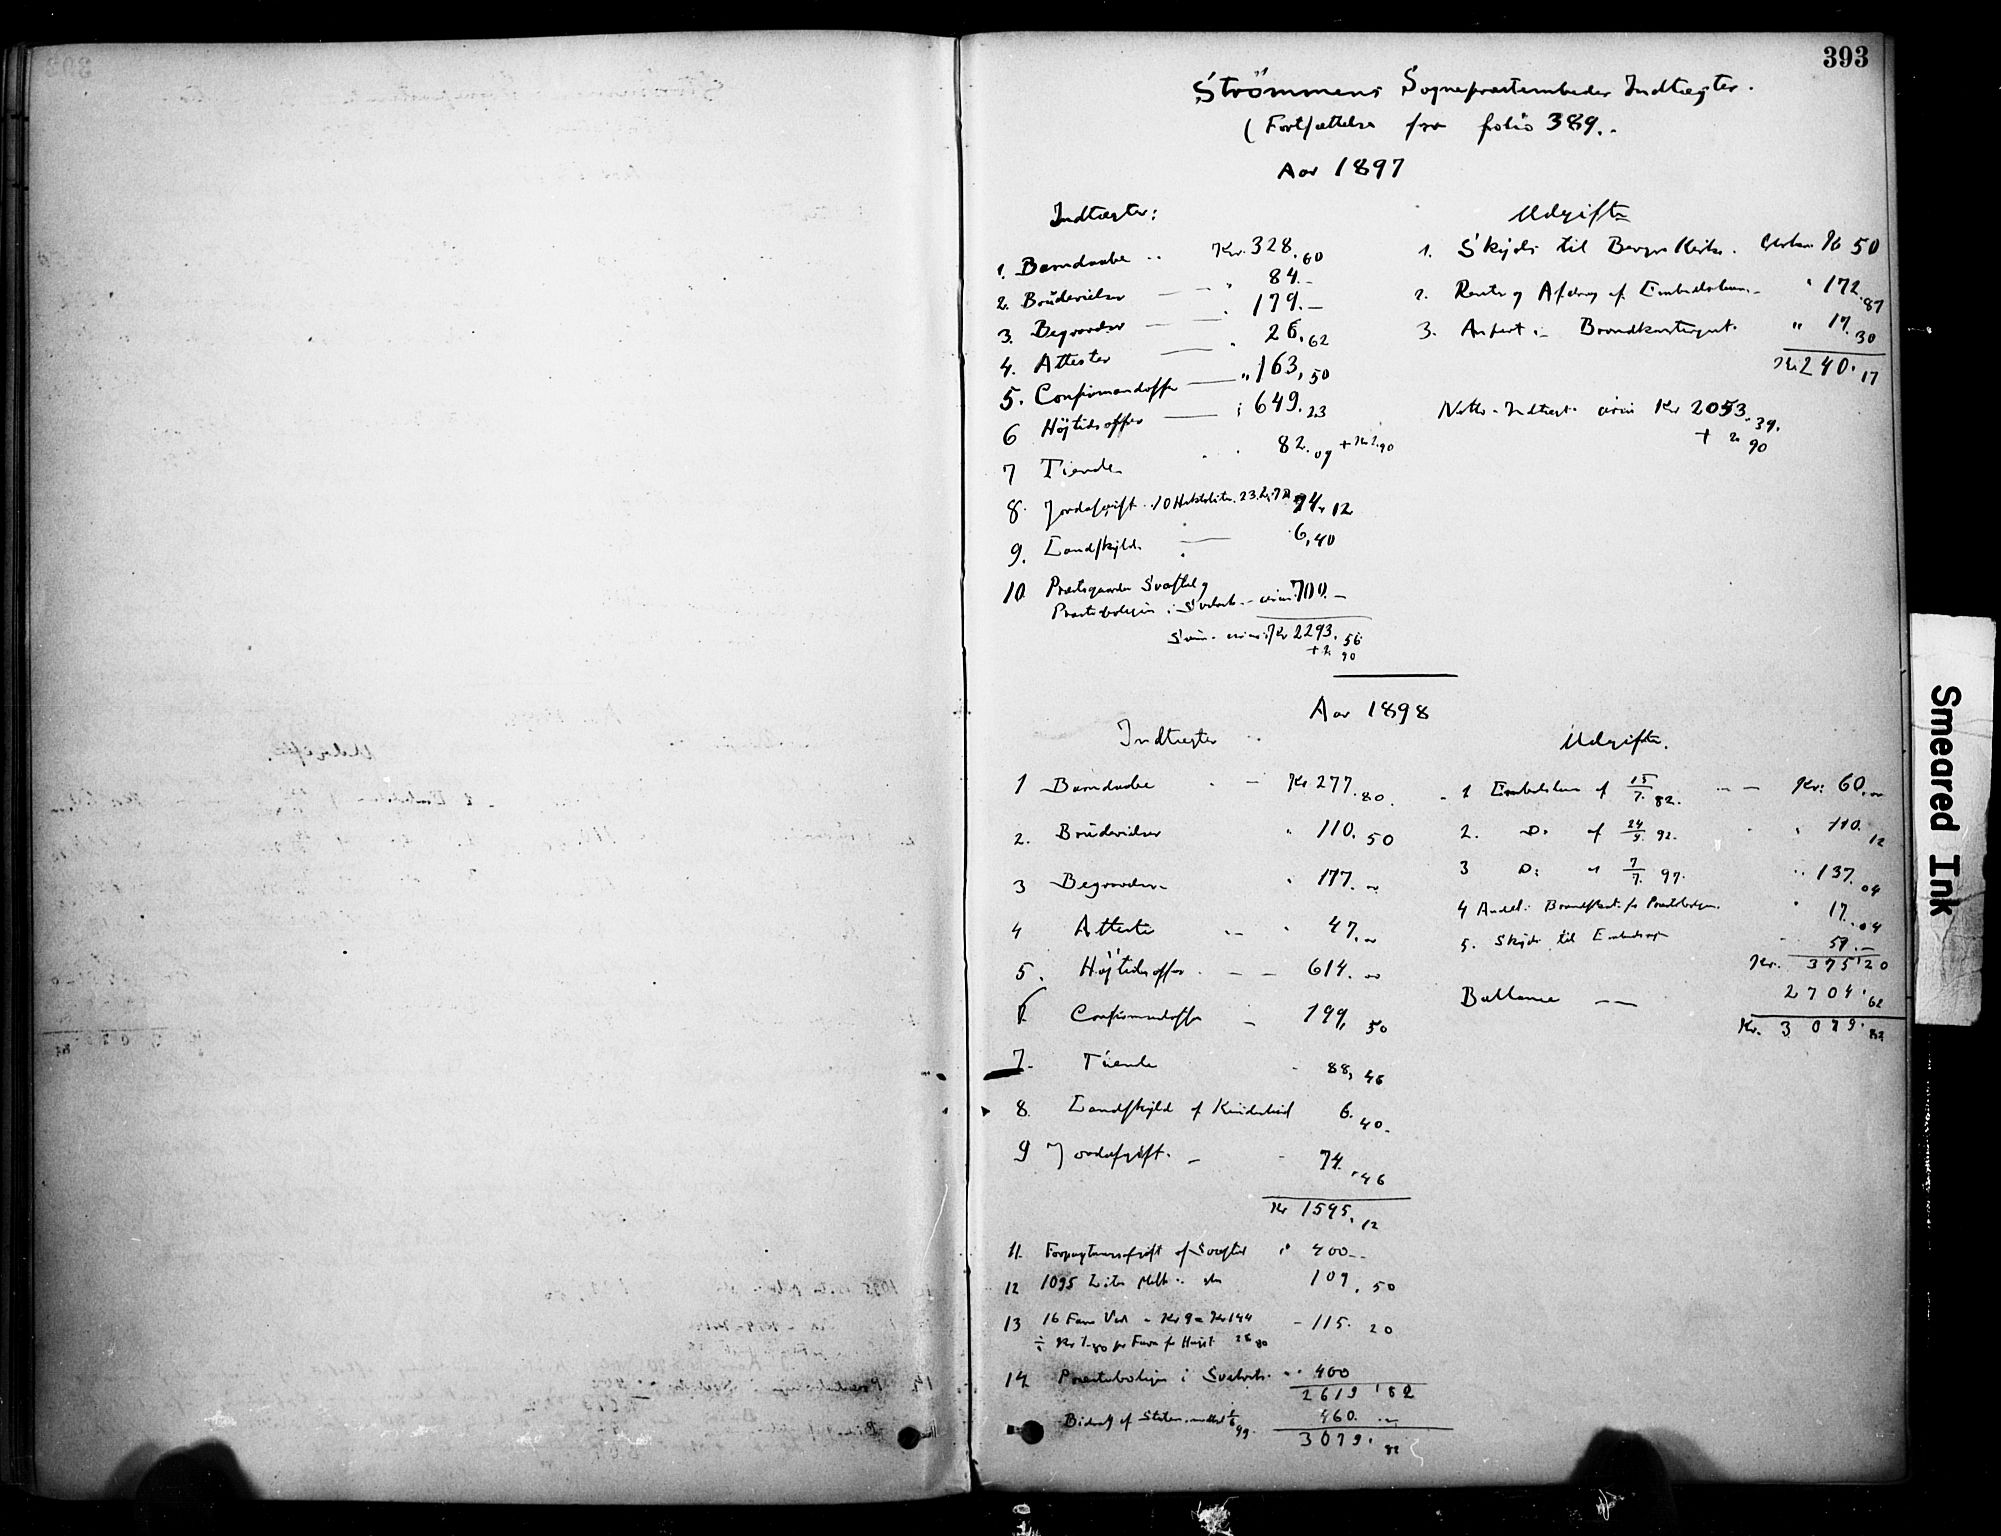 393
Strömmens Sognepræstembedes Indtægter.
(Fortsættelse fra folio 389.
Aar 1897
Indtægter:
1. Barndaabe Kr. 328.60
2. Brüdevielser 84.-
3. Begravelser 179.-
4. Attester 26.62
5. Confirmandoffer " 163,50
6 Höjtidsoffer 649.23
7 Tiende 82.09 + Kr 2.90
8. Jordafgift 10 Hektoliter 74,12
9. Landskyld 6,40
10. Præstegaarden Svaftel og
Præsteboligen i Svelvik 700.-
Sum Kr 2293.56
+ 2 90
Udgifter
1. Skydse til Berger Kirke Kr 50
2. Rente og Afdrag af Embedslaan " 172.87
3. Anpart i Brandkontingent " 17.30
Kr 240.17
Netto-Indtægt circa Kr 2053.39.
+ 2 90
Aar 1898
Indtægter
1 Barndaabe Kr 277.80.
2. Brüdevielser " 110.50
3 Begravelser " 177.
4 Attester 47.
5. Höjtidsoffer 614.
6 Confirmandoffer 199,50
7. Tiende 88,46
8. Landskyld af 6.40.
9 Jordafgift 74.46
Kr 1595.12
11. Forpagtningsafgift af Svaftel 400
12 1095 Liter Melk 109.50
13 16 Favn Ved Kr 9 = Kr 144 115.20
÷ Kr 1.80 pr Favn for Hugst 28 80
14. Præsteboligen i Svelvik 400
2619.82
Bidrag af Staten 460.
3079.82
Udgifter.
1 Embedslaan af 15/7. 82. Kr: 60.
2. Do af 24/9. 92. " 110.12
3 Do: af 7/7. 97. " 137.04
4 Andel i for Præsteboligen " 17.04
5. Skyds til 51.-
Kr. 375.20
Ballance 2704.62
Kr. 3079.82
Smeared Ink